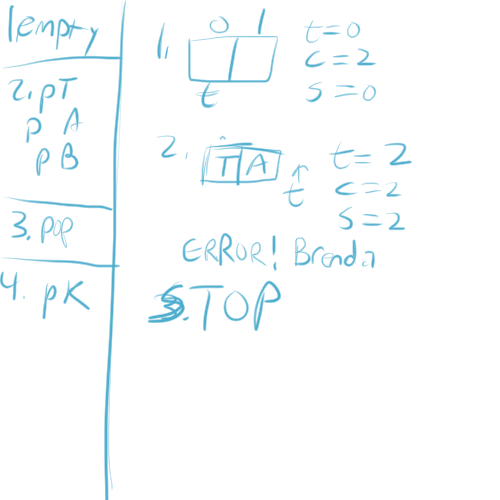 1empty
2. pT
p A
p B
3. pop
4. pK
1.
0 1
t=0
c=2
s=0
t
2.
T A
t
t=2
c=2
s=2
ERROR! Brenda
3. TOP